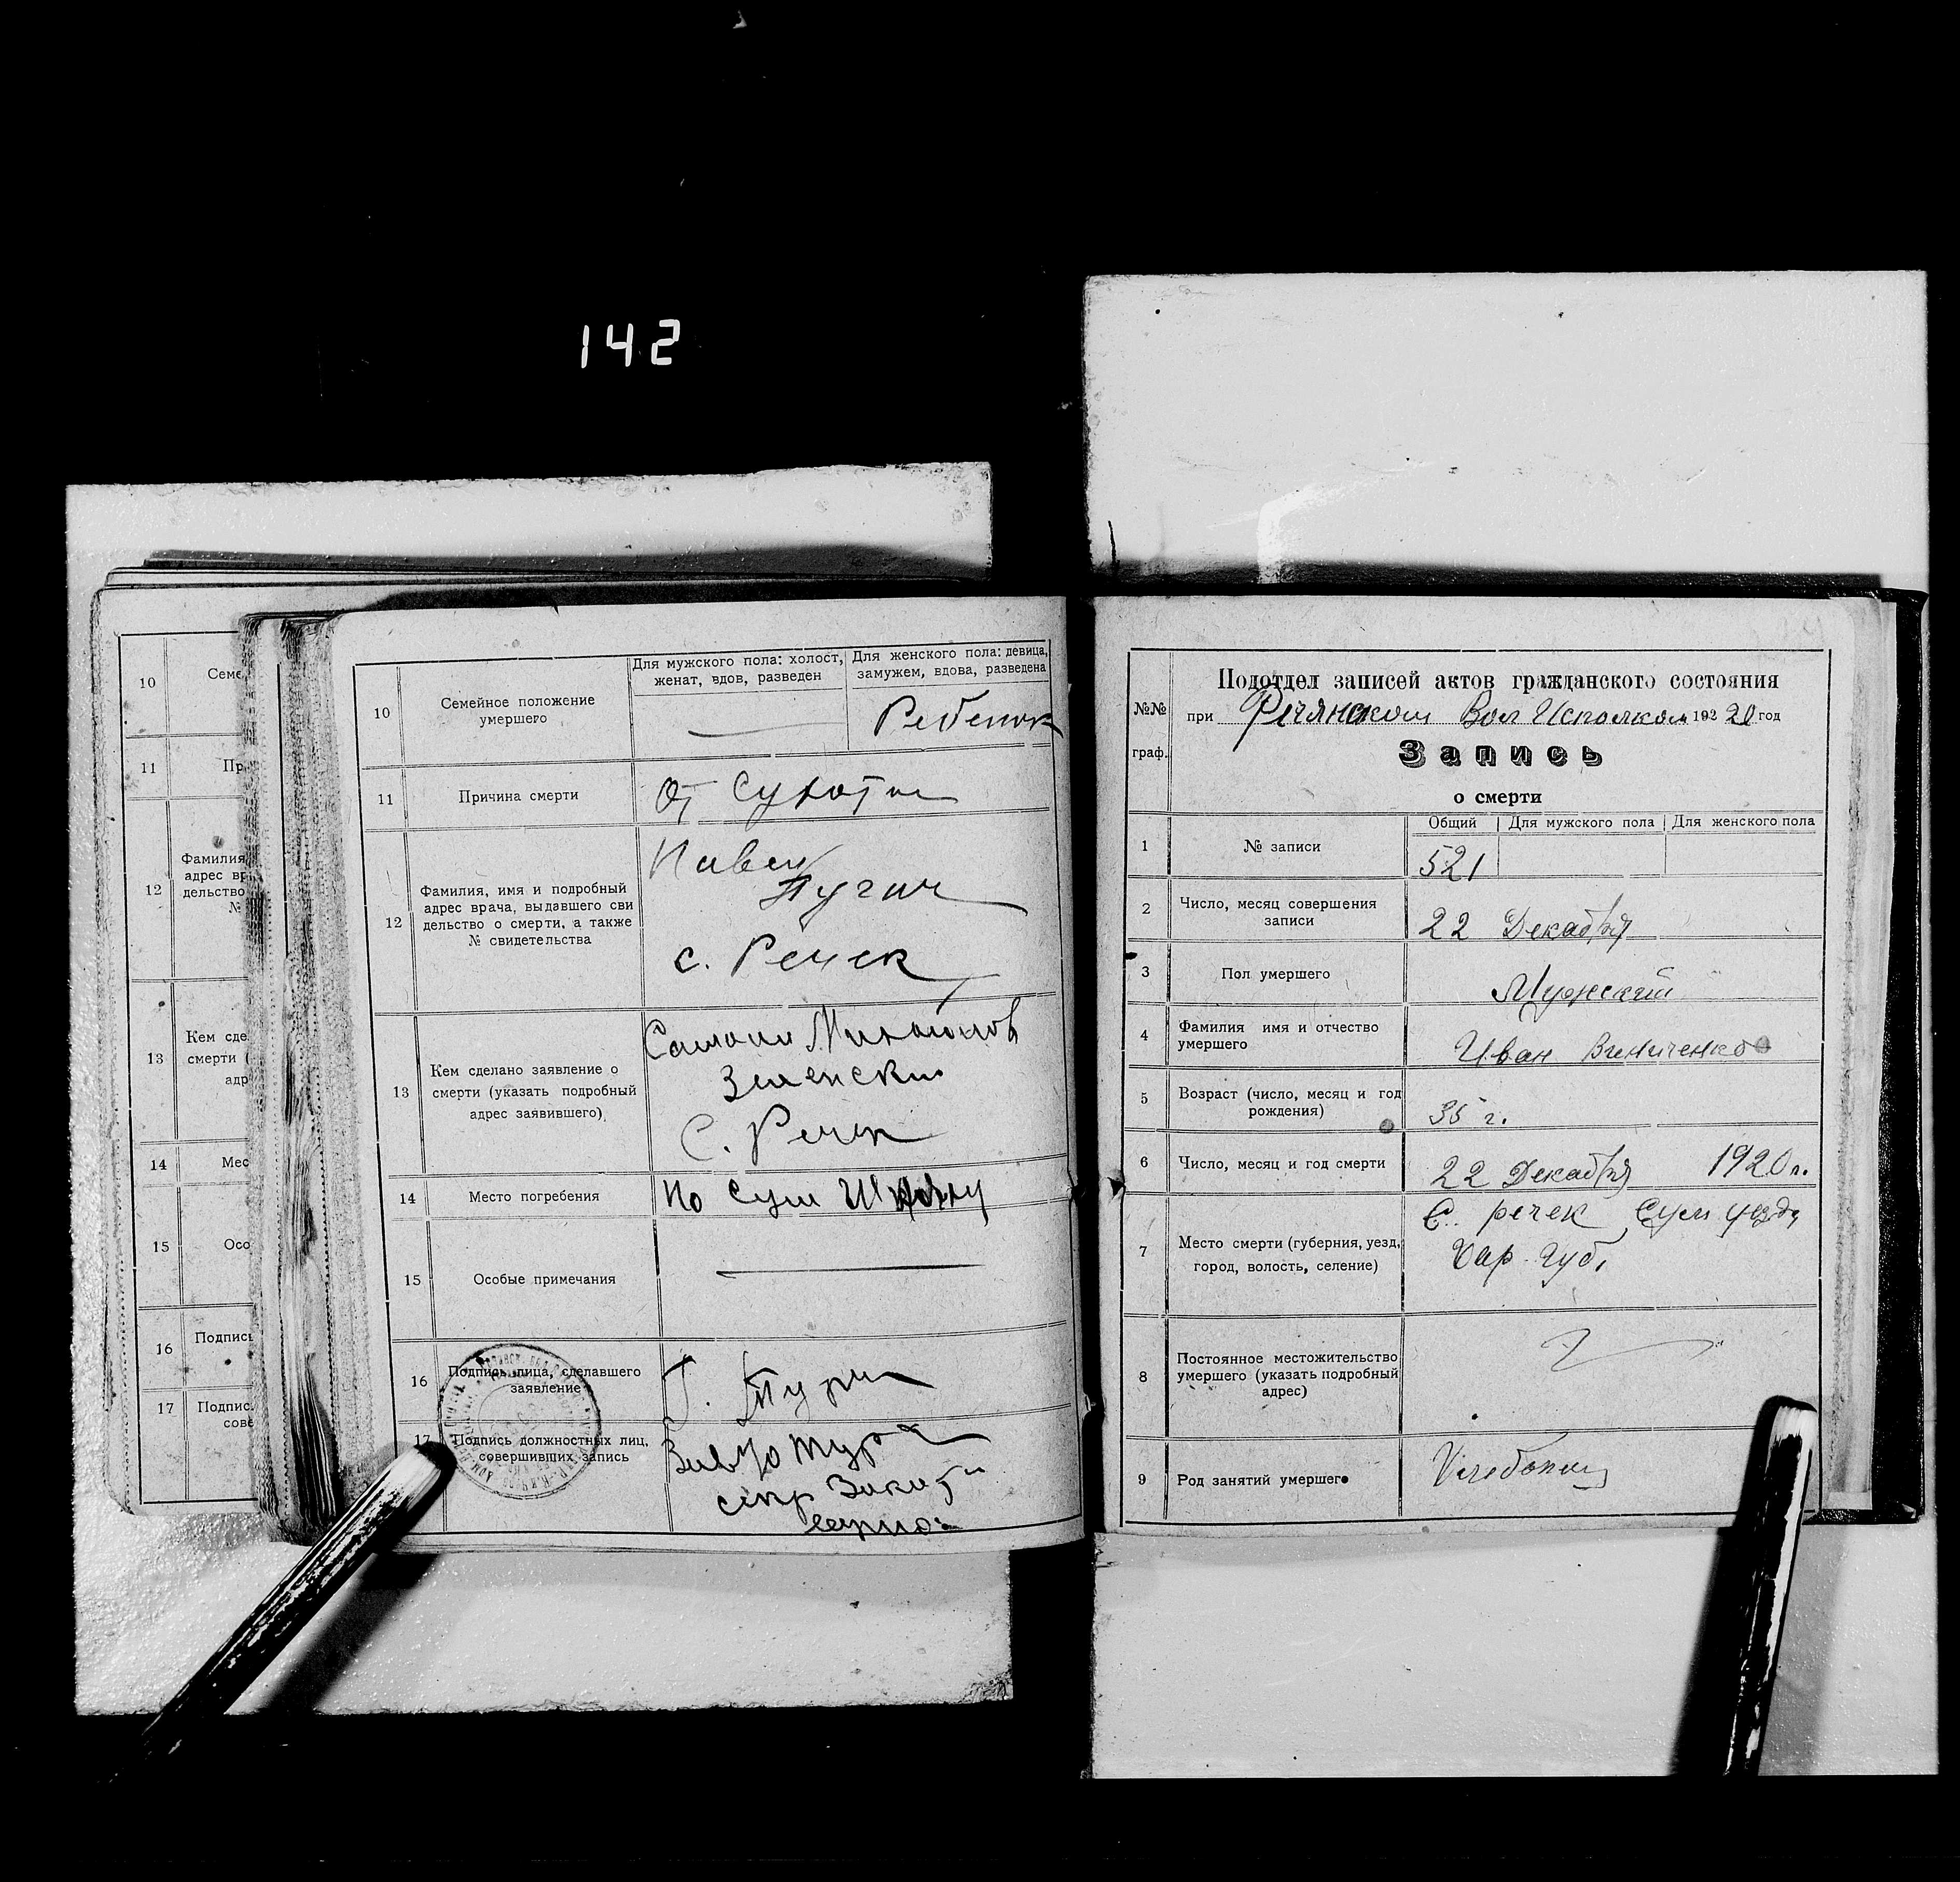 142
10
Семе
11
Пр
12
Фамилия
адрес вр
дельство
№
13
Кем сде
смерти (
адр
14
Мес
15
Осо
16
Подпись
17
Подпис
сове
10
Семейное положение
умершего
Для мужского пола: холост,
женат, вдов, разведен
Для женского пола: девица,
замужем, вдова, разведена
Ребенок
11
Причина смерти
От Сухотки
12
Фамилия, имя и подробный
адрес врача, выдавшего сви
дельство о смерти, а также
№ свидетельства
Павел
с. Речек
13
Кем сделано заявление о
смерти (указать подробный
адрес заявившего)
Зиленский
С. Речек
14
Место погребения
По Сум
15
Особые примечания
16
Подпись лица, сделавшего
заявление
17
Подпись должностных лиц,
совершивших запись
№№
граф.
Подотдел записей актов гражданского состояния
при Речянском Вол Исполком 192 20 год
Запись
о смерти
1
№ записи
Общий
Для мужского пола
Для женского пола
521
2
Число, месяц совершения
записи
22 Декабря
3
Пол умершего
Мужский
4
Фамилия имя и отчество
умершего
Иван Виниченко
5
Возраст (число, месяц и год
рождения)
35 г.
6
Число, месяц и год смерти
22 Декабря 1920 г.
7
Место смерти (губерния, уезд,
город, волость, селение)
С. речек Сум уезда
Хар. губ.
8
Постоянное местожительство
умершего (указать подробный
адрес)
9
Род занятий умершего
Хлебопаш